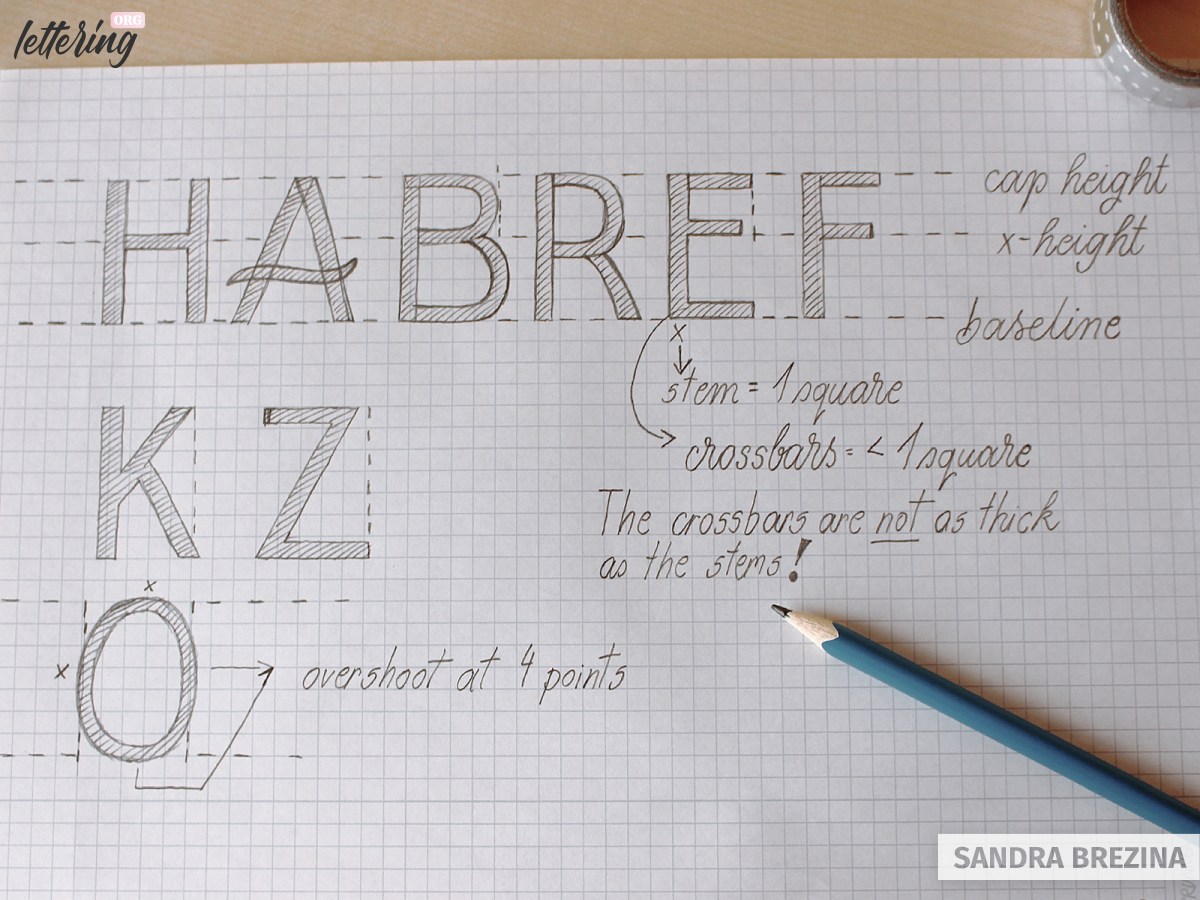 lettering
ORG
HABREF
cap height
x-height
baseline
x
stem = 1 square
crossbars = < 1 square
KZ
The crossbars are not as thick
as the stems!
x
x
O
overshoot at 4 points
SANDRA BREZINA